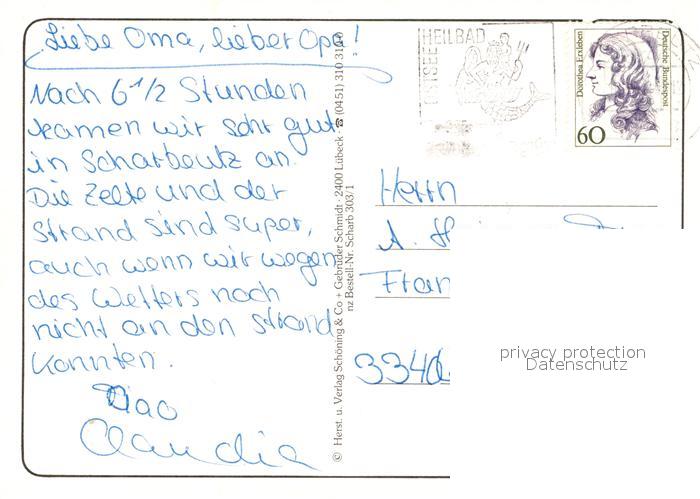 Liebe Oma, lieber Opa!
Nach 6 1/2 Stunden
kamen wir sehr gut
in Scharbeutz an.
Die Zelte und der
Strand sind super,
auch wenn wir wegen
des Wetters noch
nicht an den Strand
konnten.
Ciao
Claudia
© Herst. u. Verlag Schöning & Co + Gebrüder Schmidt · 2400 Lübeck · ☎ (0451) 310 310
nz Bestell-Nr. Scharb 303/1
OSTSEE HEILBAD
Dorothea Erxleben
Deutsche Bundespost
60
Herrn
A. H
Fran
3340
privacy protection
Datenschutz